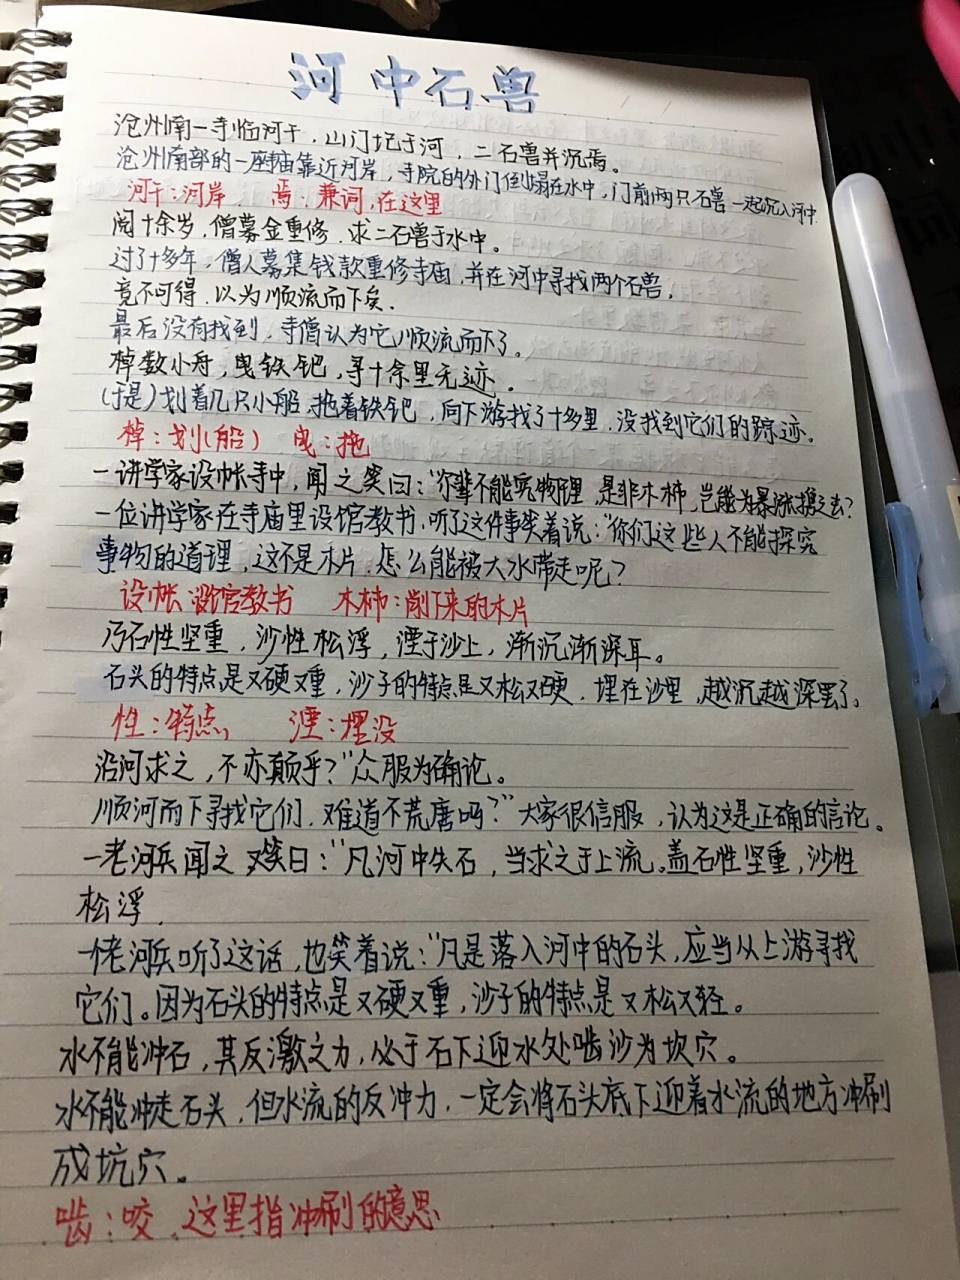 河中石兽
沧州南一寺临河干，山门圮于河，二石兽并沉焉。
沧州南部的一座庙靠近河岸，寺院的外门倒塌在水中，门前两只石兽一起沉入河中
河干：河岸　焉：兼词，在这里
阅十余岁，僧募金重修，求二石兽于水中。
过了十多年，僧人募集钱款重修寺庙，并在河中寻找两个石兽，
竟不可得，以为顺流而下矣.
最后没有找到，寺僧认为它顺流而下了。
棹数小舟，曳铁钯，寻十余里无迹。
(于是)划着几只小船，拖着铁钯，向下游找了十多里，没找到它们的踪迹。
棹：划(船)　曳：拖
一讲学家设帐寺中，闻之笑曰：“尔辈不能究物理，是非木杮，岂能为暴涨携之去？
一位讲学家在寺庙里设馆教书，听了这件事笑着说：“你们这些人不能探究
事物的道理，这不是木片，怎么能被大水带走呢？
设帐：设馆教书　木杮：削下来的木片
乃石性坚重，沙性松浮，湮于沙上，渐沉渐深耳。
石头的特点是又硬又重，沙子的特点是又松又硬，埋在沙里，越沉越深罢了。
性：特点　湮：埋没
沿河求之，不亦颠乎？”众服为确论。
顺河而下寻找它们，难道不荒唐吗？”大家很信服，认为这是正确的言论。
一老河兵闻之又笑曰：“凡河中失石，当求之于上流。盖石性坚重，沙性
松浮，
一个老河兵听了这话，也笑着说：“凡是落入河中的石头，应当从上游寻找
它们。因为石头的特点是又硬又重，沙子的特点是又松又轻。
水不能冲石，其反激之力，必于石下迎水处啮沙为坎穴。
水不能冲走石头，但水流的反冲力，一定会将石头底下迎着水流的地方冲刷
成坑穴。
啮：咬，这里指冲刷的意思